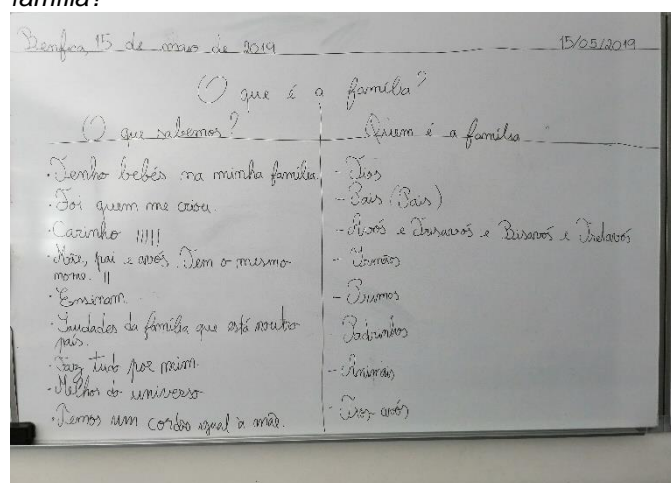 família?
Benfica, 15 de maio de 2019
15/05/2019
O que é a família?
O que sabemos?
· Tenho bebés na minha família.
· Foi quem me criou.
· Carinho !!!!!
· Mãe, pai e avós. Tem o mesmo
nome. ||
· Ensinam.
· Saudades da família que está noutro
país.
· Faz tudo por mim.
· Melhor do universo
· Temos um cordão igual à mãe.
Quem é a família
- Tios
- Pais (Pais)
- Avós e Trisavós e Bisavós e Tretavós
- Irmãos
- Primos
- Padrinhos
- Animais
- avós